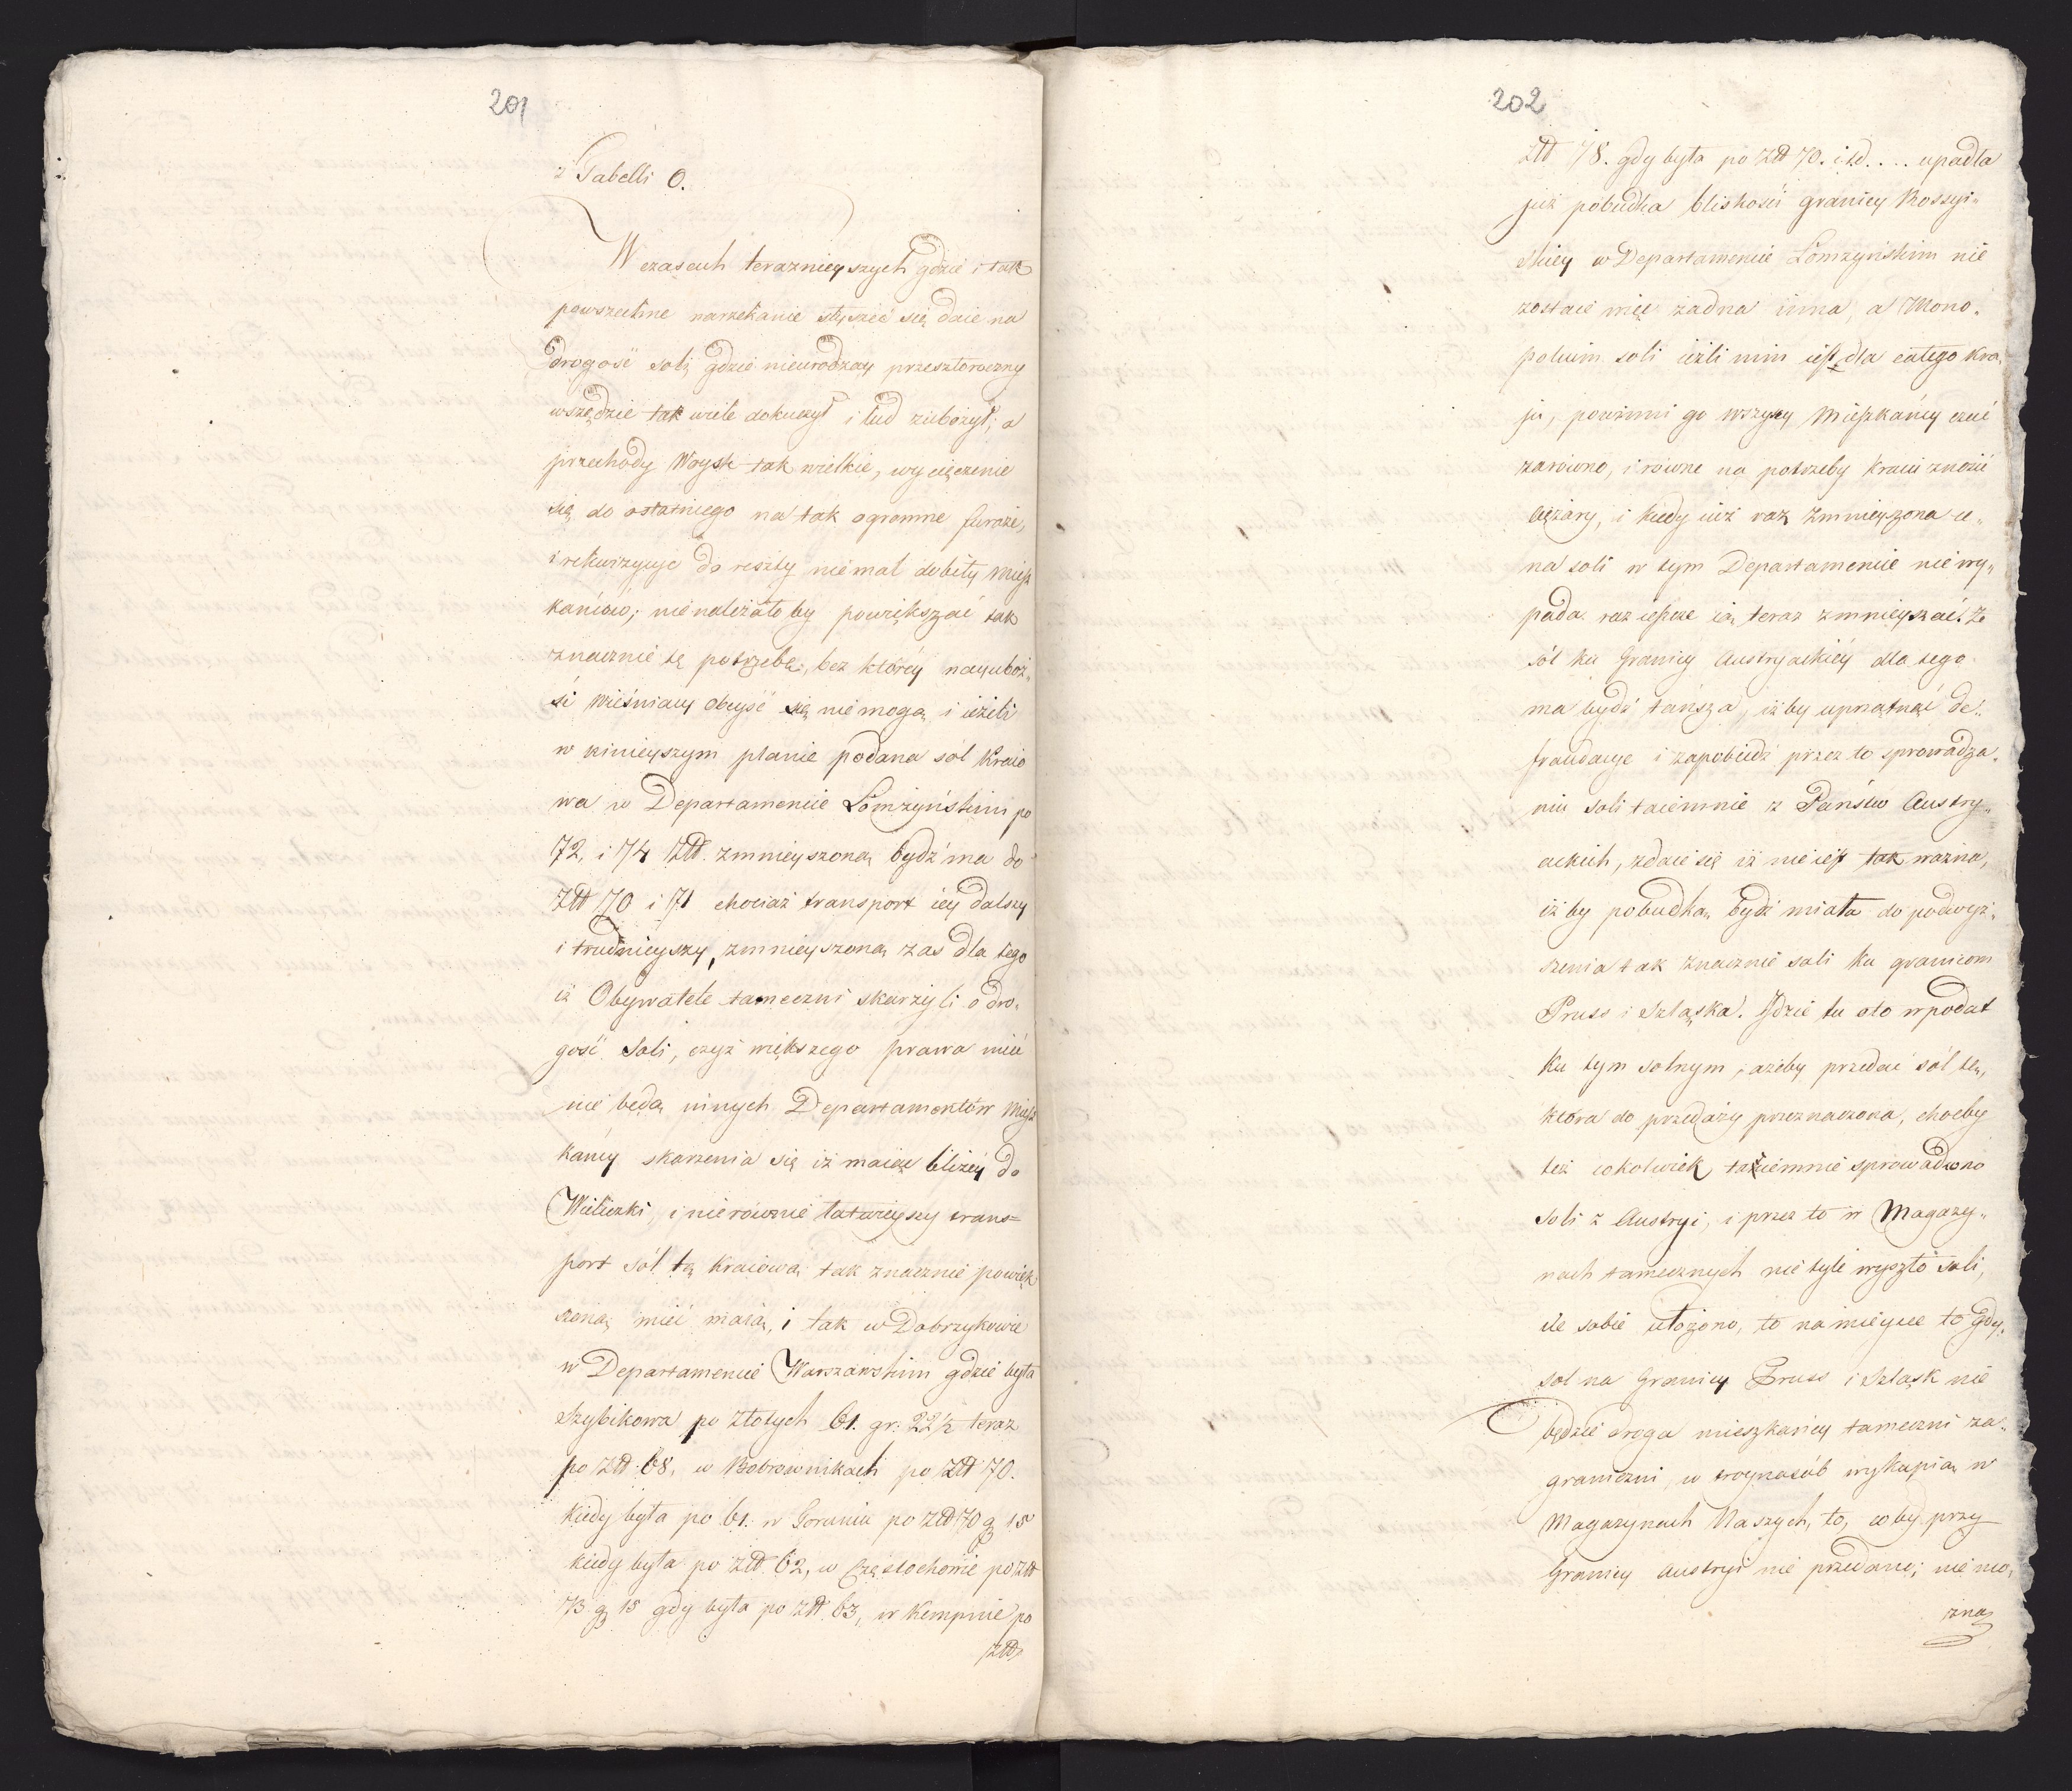 201
z Tabelli O.
W czasach teraznieyszych gdzie i tak
powszechne narzekanie słyszeć się daie na
drogość soli, gdzie nieurodzay przeszłoroczny
wszędzie tak wiele dokuczył i lud zubożył; a
przechody Woysk tak wielkie, wycięczenie
się do ostatniego na tak ogromne furaże,
i rekwizycye do reszty niemal dobiły Miesz
kańców; nienależałoby powiększać tak
znacznie tę potrzebę, bez którey nayuboż„
si wieśniacy obeyść się niemogą, i ieżeli
w ninieyszym planie podana sól Kraio
wa w Departamencie Łomżyńskim po
72, i 74 Złł. zmnieyszoną bydź ma do
Złł 70 i 71 chociaż transport iey dalszy
i trudnieyszy, zmnieyszoną zas dla tego
iż Obywatele tameczni skarzyli o dro„
gość Soli, czyż większego prawa mieć
nie będą innych Departamentów Miesz
kańcy skarzenia się iż maiąc bliżey do
Wieliczki, i nierównie łatwieyszy trans=
port sól tę kraiową tak znacznie powięk
szoną mieć maią, i tak w Dobrzykowie
w Departamencie Warszawskim gdzie była
Szybikowa po złotych 61. gr: 22½ teraz
po Złł 68, w Bobrownikach po Złł 70.
kiedy była po 61. w Toruniu po Złł 70 g 15
kiedy była po Złł 62, w Częstochowie po Złł
73 g 15 gdy była po Złł 63, w Kempnie po
Złł
202
Złł 78. gdy była po Złł 70. i t.d.... upadła
już pobudka bliskości granicy Rossyi„
skiey w Departamencie Łomżyńskim nie
zostaie więc żadna inna, a Mono„
polium soli ieżli nim iest dla całego Kra„
ju, powinni go wszyscy Mieszkańcy czuć
zarówno, i równe na potrzeby Kraiu znosić
ciężary, i kiedy iuż raz zmnieyszona ce„
na soli w tym Departamencie nie wy„
pada raz ieszcze ią teraz zmnieyszać. Że
sól ku Granicy Austryackiey dla tego
ma bydź tańsza, iżby uprzątnąć de„
fraudacye i zapobiedz przez to sprowadza„
niu soli taiemnie z Państw Austry„
ackich, zdaie się iż nie iest tak ważna,
iżby pobudką bydź miała do podwyż„
szenia tak znacznie soli ku granicom
Pruss i Szląska. Idzie tu oto w podat
ku tym solnym, ażeby przedać sól tę,
która do przedaży przeznaczona, choćby
też cokolwiek taiemnie sprowadzono
Soli z Austryi, i przez to w Magazy„
nach tamecznych nie tyle wyszło soli,
ile sobie ułożono, to na mieysce to gdy
sol na Granicy Pruss i Szląsk nie
będzie droga mieszkańcy tameczni za„
graniczni, w troynasób wykupią w
Magazynach Naszych, to, coby przy
Granicy Austryi nie przedano; nie mo„
żna